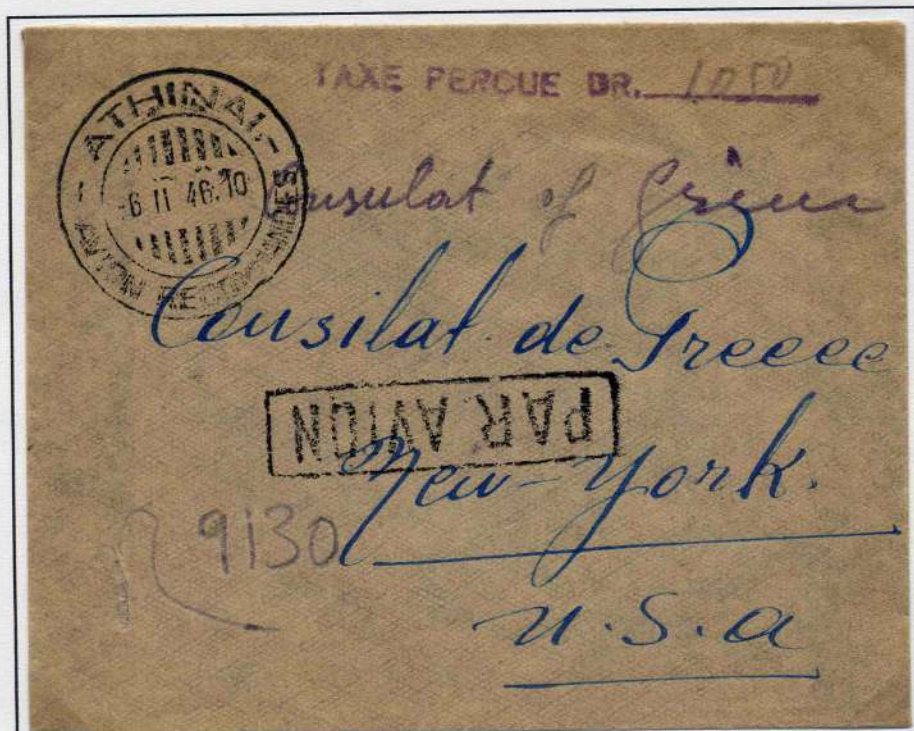 TAXE PERCUE DR. 1050
- ATHINAI -
-6 II 46.10
AVION RECOMMANDES
Consulat of
Consilat de Greece
PAR AVION
New-York.
R 9130
U.S.a